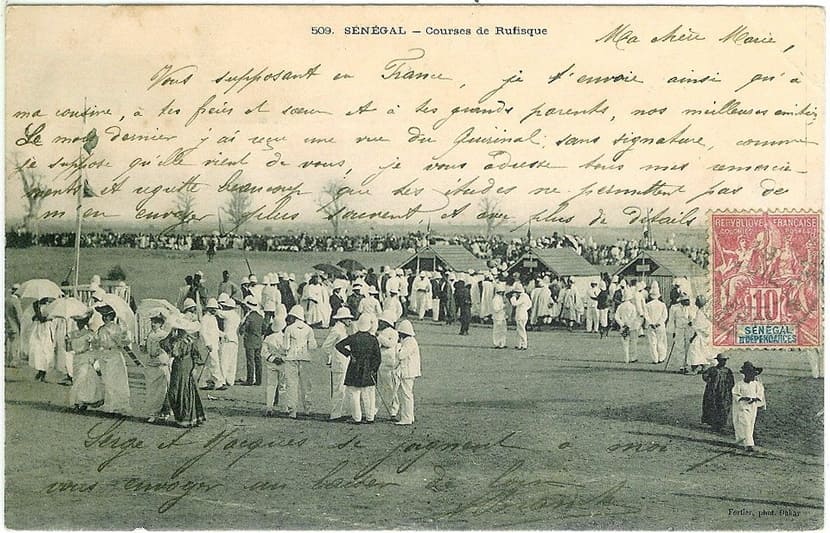 509. SÉNÉGAL – Courses de Rufisque
Ma chère Marie,
Vous supposant en France, je t'envoie ainsi qu'à
ma cousine, à tes frères et sœur et à tes grands parents, nos meilleures amitiés
Le mois dernier j'ai reçu une vue du Quirinal sans signature, comme
je suppose qu'elle vient de vous, je vous adresse tous mes remercie-
ments et regrette beaucoup que tes études ne permettent pas de
m'en envoyer plus souvent et avec plus de détails
RÉPUBLIQUE FRANÇAISE
COLONIES POSTES
10
SÉNÉGAL
ET DÉPENDANCES
Serge et Jacques se joignent à moi
vous envoyer un baiser de
Fortier, phot. Dakar